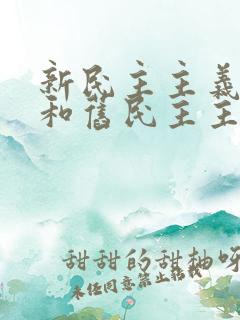 新民主主義
和舊民主主
甜甜的甜柚呀
未经同意禁止转载